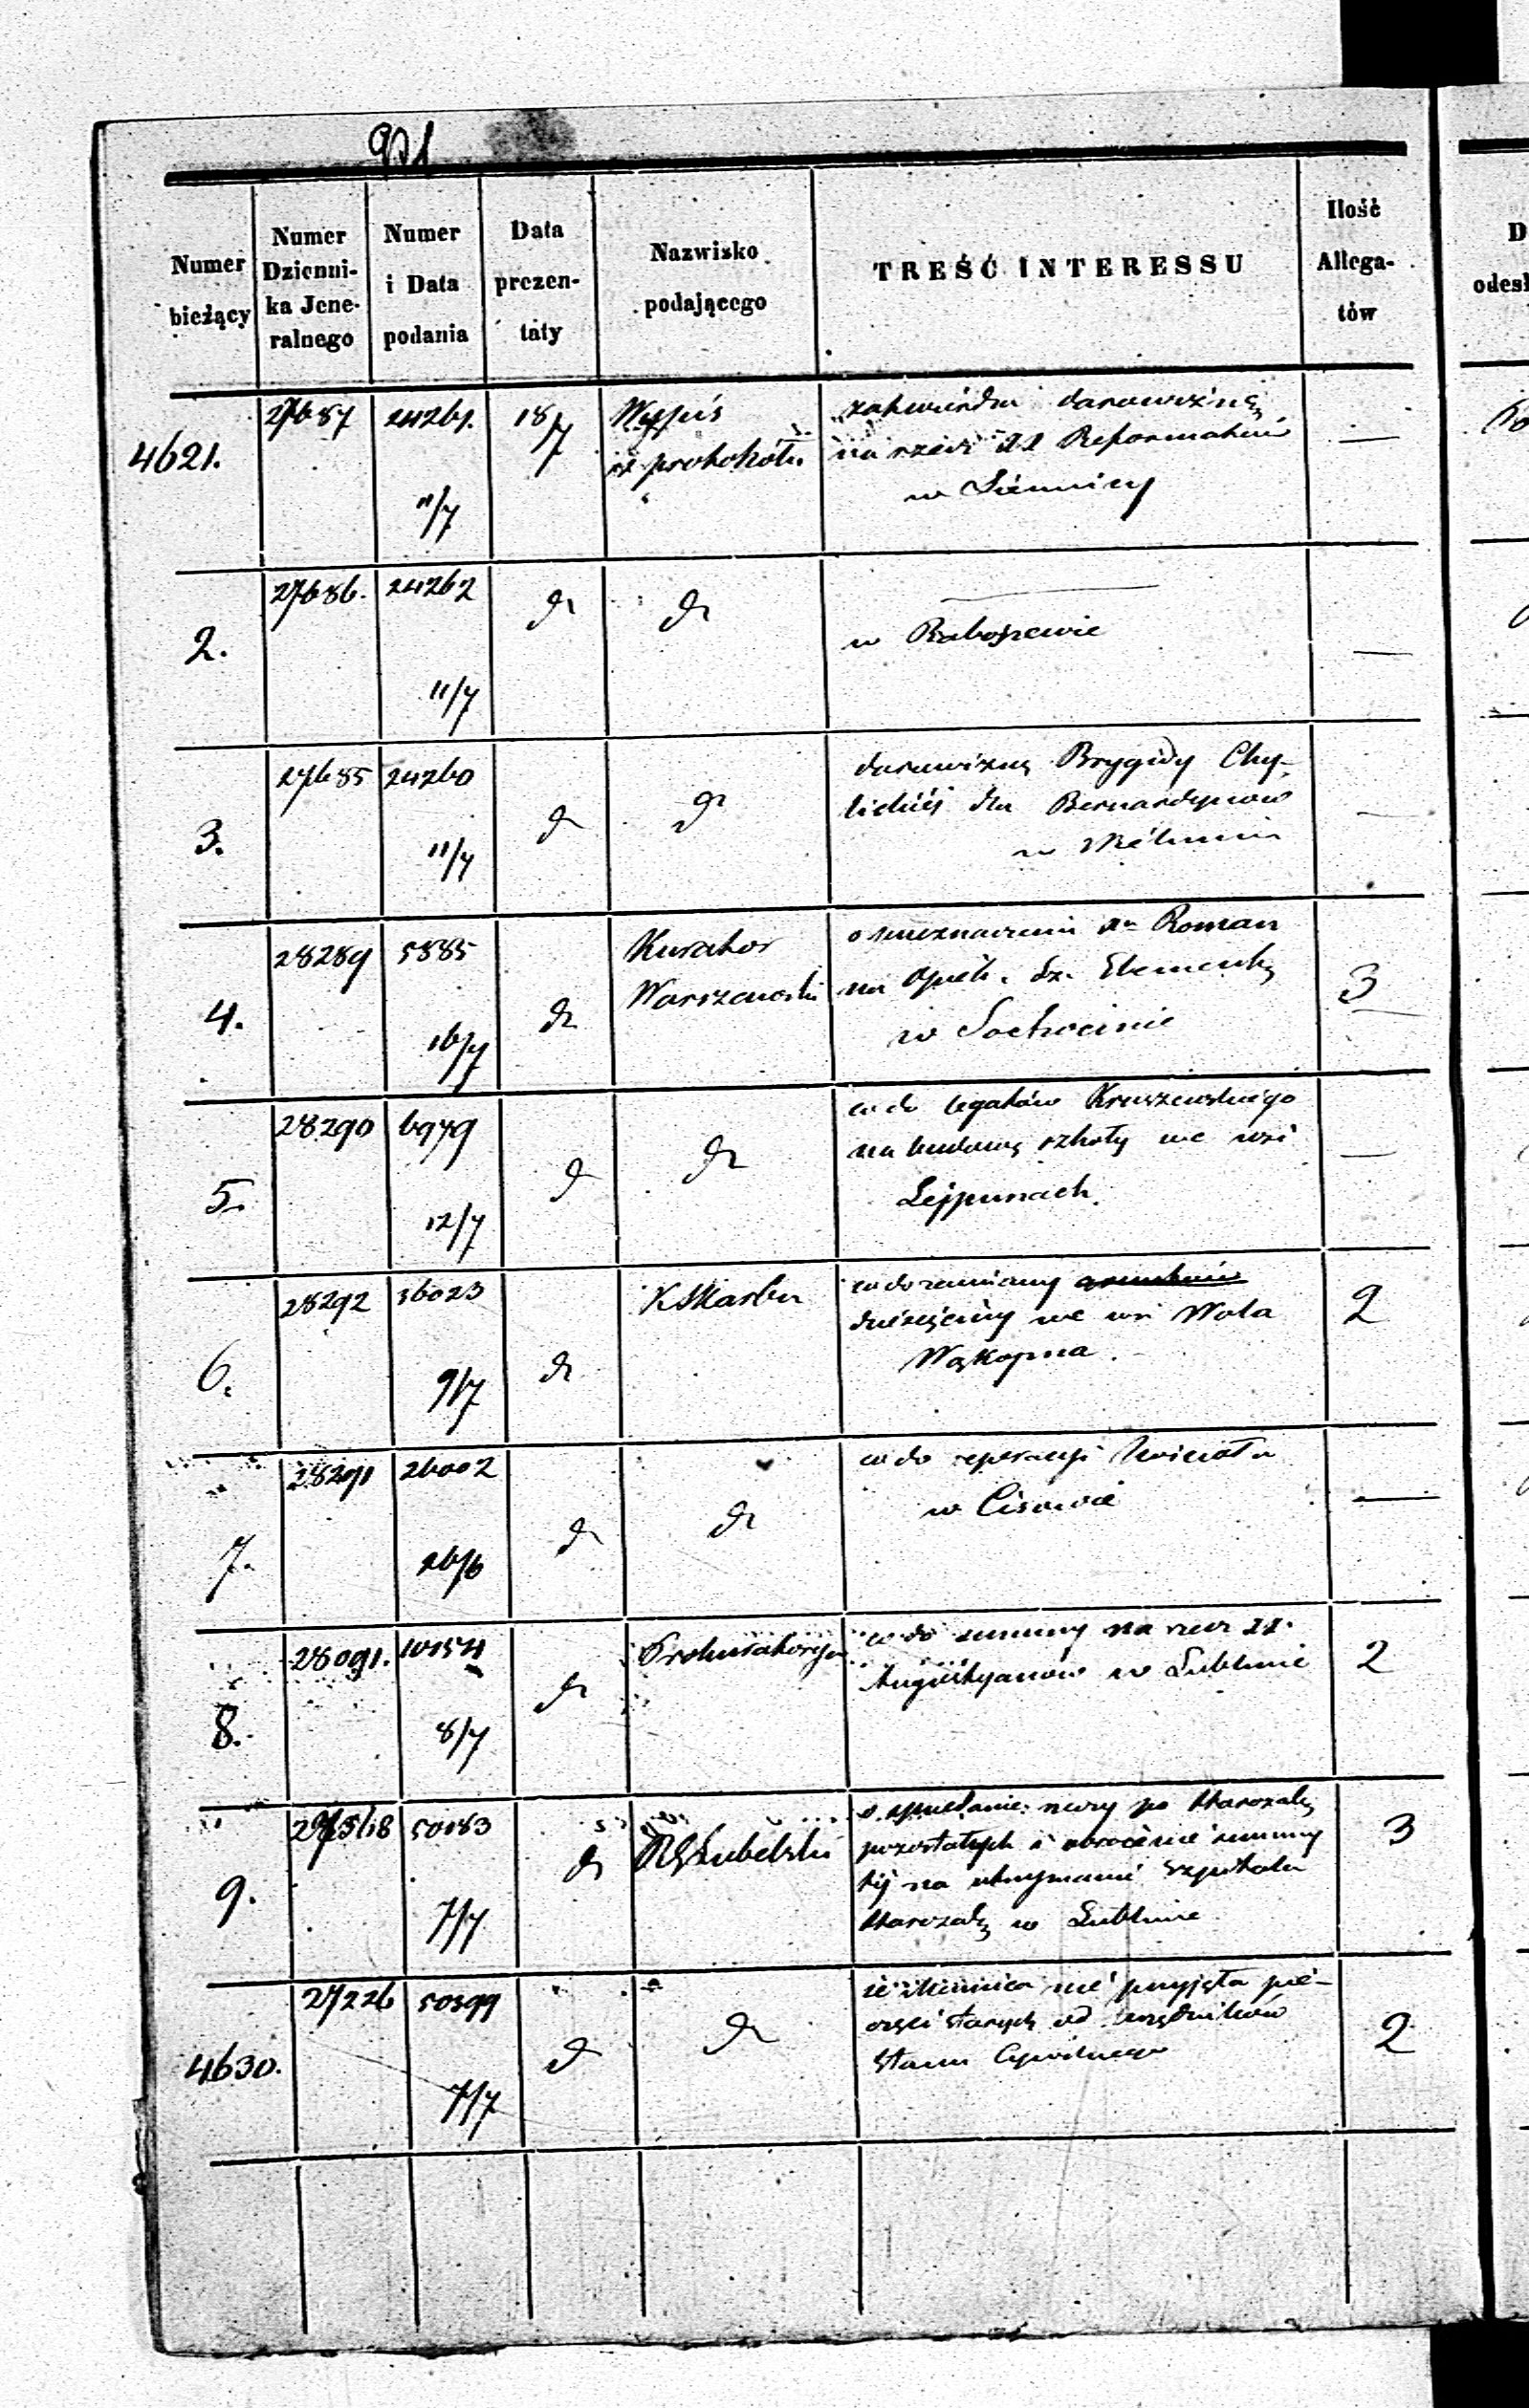 931
Numer bieżący
Numer Dzienni- ka Jene- ralnego
Numer i Data podania
Data prezen- taty
Nazwisko podającego
TREŚĆ INTERESSU
Ilość Allega- tów
4621. 27687 24261. 11/7 18/7
Wypis
z protokołu
zatwierdza darowiznę
na rzecz XX Reformatów
w Siennicy
—
2. 27686. 24262 11/7 dt dt
w Raboszewie
—
3. 27685 24260 11/7 dt dt
darowiznę Brygidy Chy-
lickiéj dla Bernardynow
w
—
4. 28289 5885 16/7 dt
Kurator
Warszawski
o Xa Roman
na Opiek. Sz. Elementę
w Sochocinie
3
5. 28290 6979 12/7 dt dt
co do legatów Kruszewskiego
na budowę szkoły we wsi
Lejpunach.
—
6. 28292 36023 9/7 dt
K Skarbu
co do zamiany
dziesięciny we wsi Wola
Wąkopna.
2
7. 28291 26002 26/6 dt dt
co do reperacyi Kościoła
w Cisowie
—
8. 28091. 10154 8/7 dt
Prokuratorya
co do summy na rzecz XX.
Augustyanow w Lublinie
2
9. 27568 50183 7/7 dt
RG Lubelski
o sprzedanie po
pozostałych i obrócenie summy
téj na utrzymanie Szpitala
w Lublinie
3
4630. 27226 50399 7/7 dt dt
że nie przyjęła pie-
częci starych od urzędników
Stanu Cywilnego
2